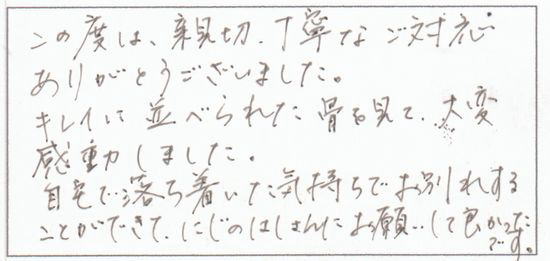 この度は、親切、丁寧なご対応
ありがとうございました。
キレイに並べられた骨を見て、大変
感動しました。
自宅で落ち着いた気持ちでお別れする
ことができて、にじのはしさんにお願いして良かった
です。